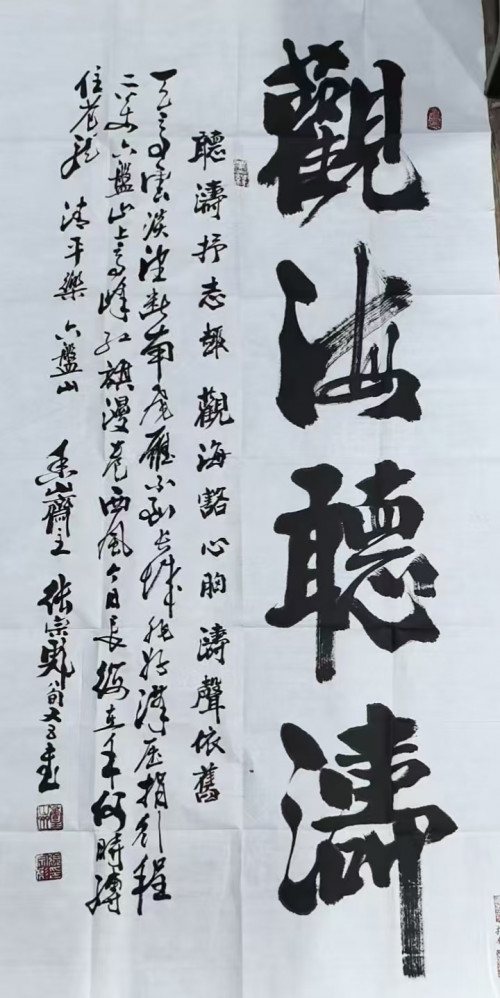 觀海聽濤
聽濤抒志趣 觀海豁心胸 濤聲依舊
天高雲淡望斷南飛雁不到長城非好漢屈指行程
二萬六盤山上高峰紅旗漫卷西風今日長纓在手何時縛
住蒼龍 清平樂 六盤山 山齋主 張宗